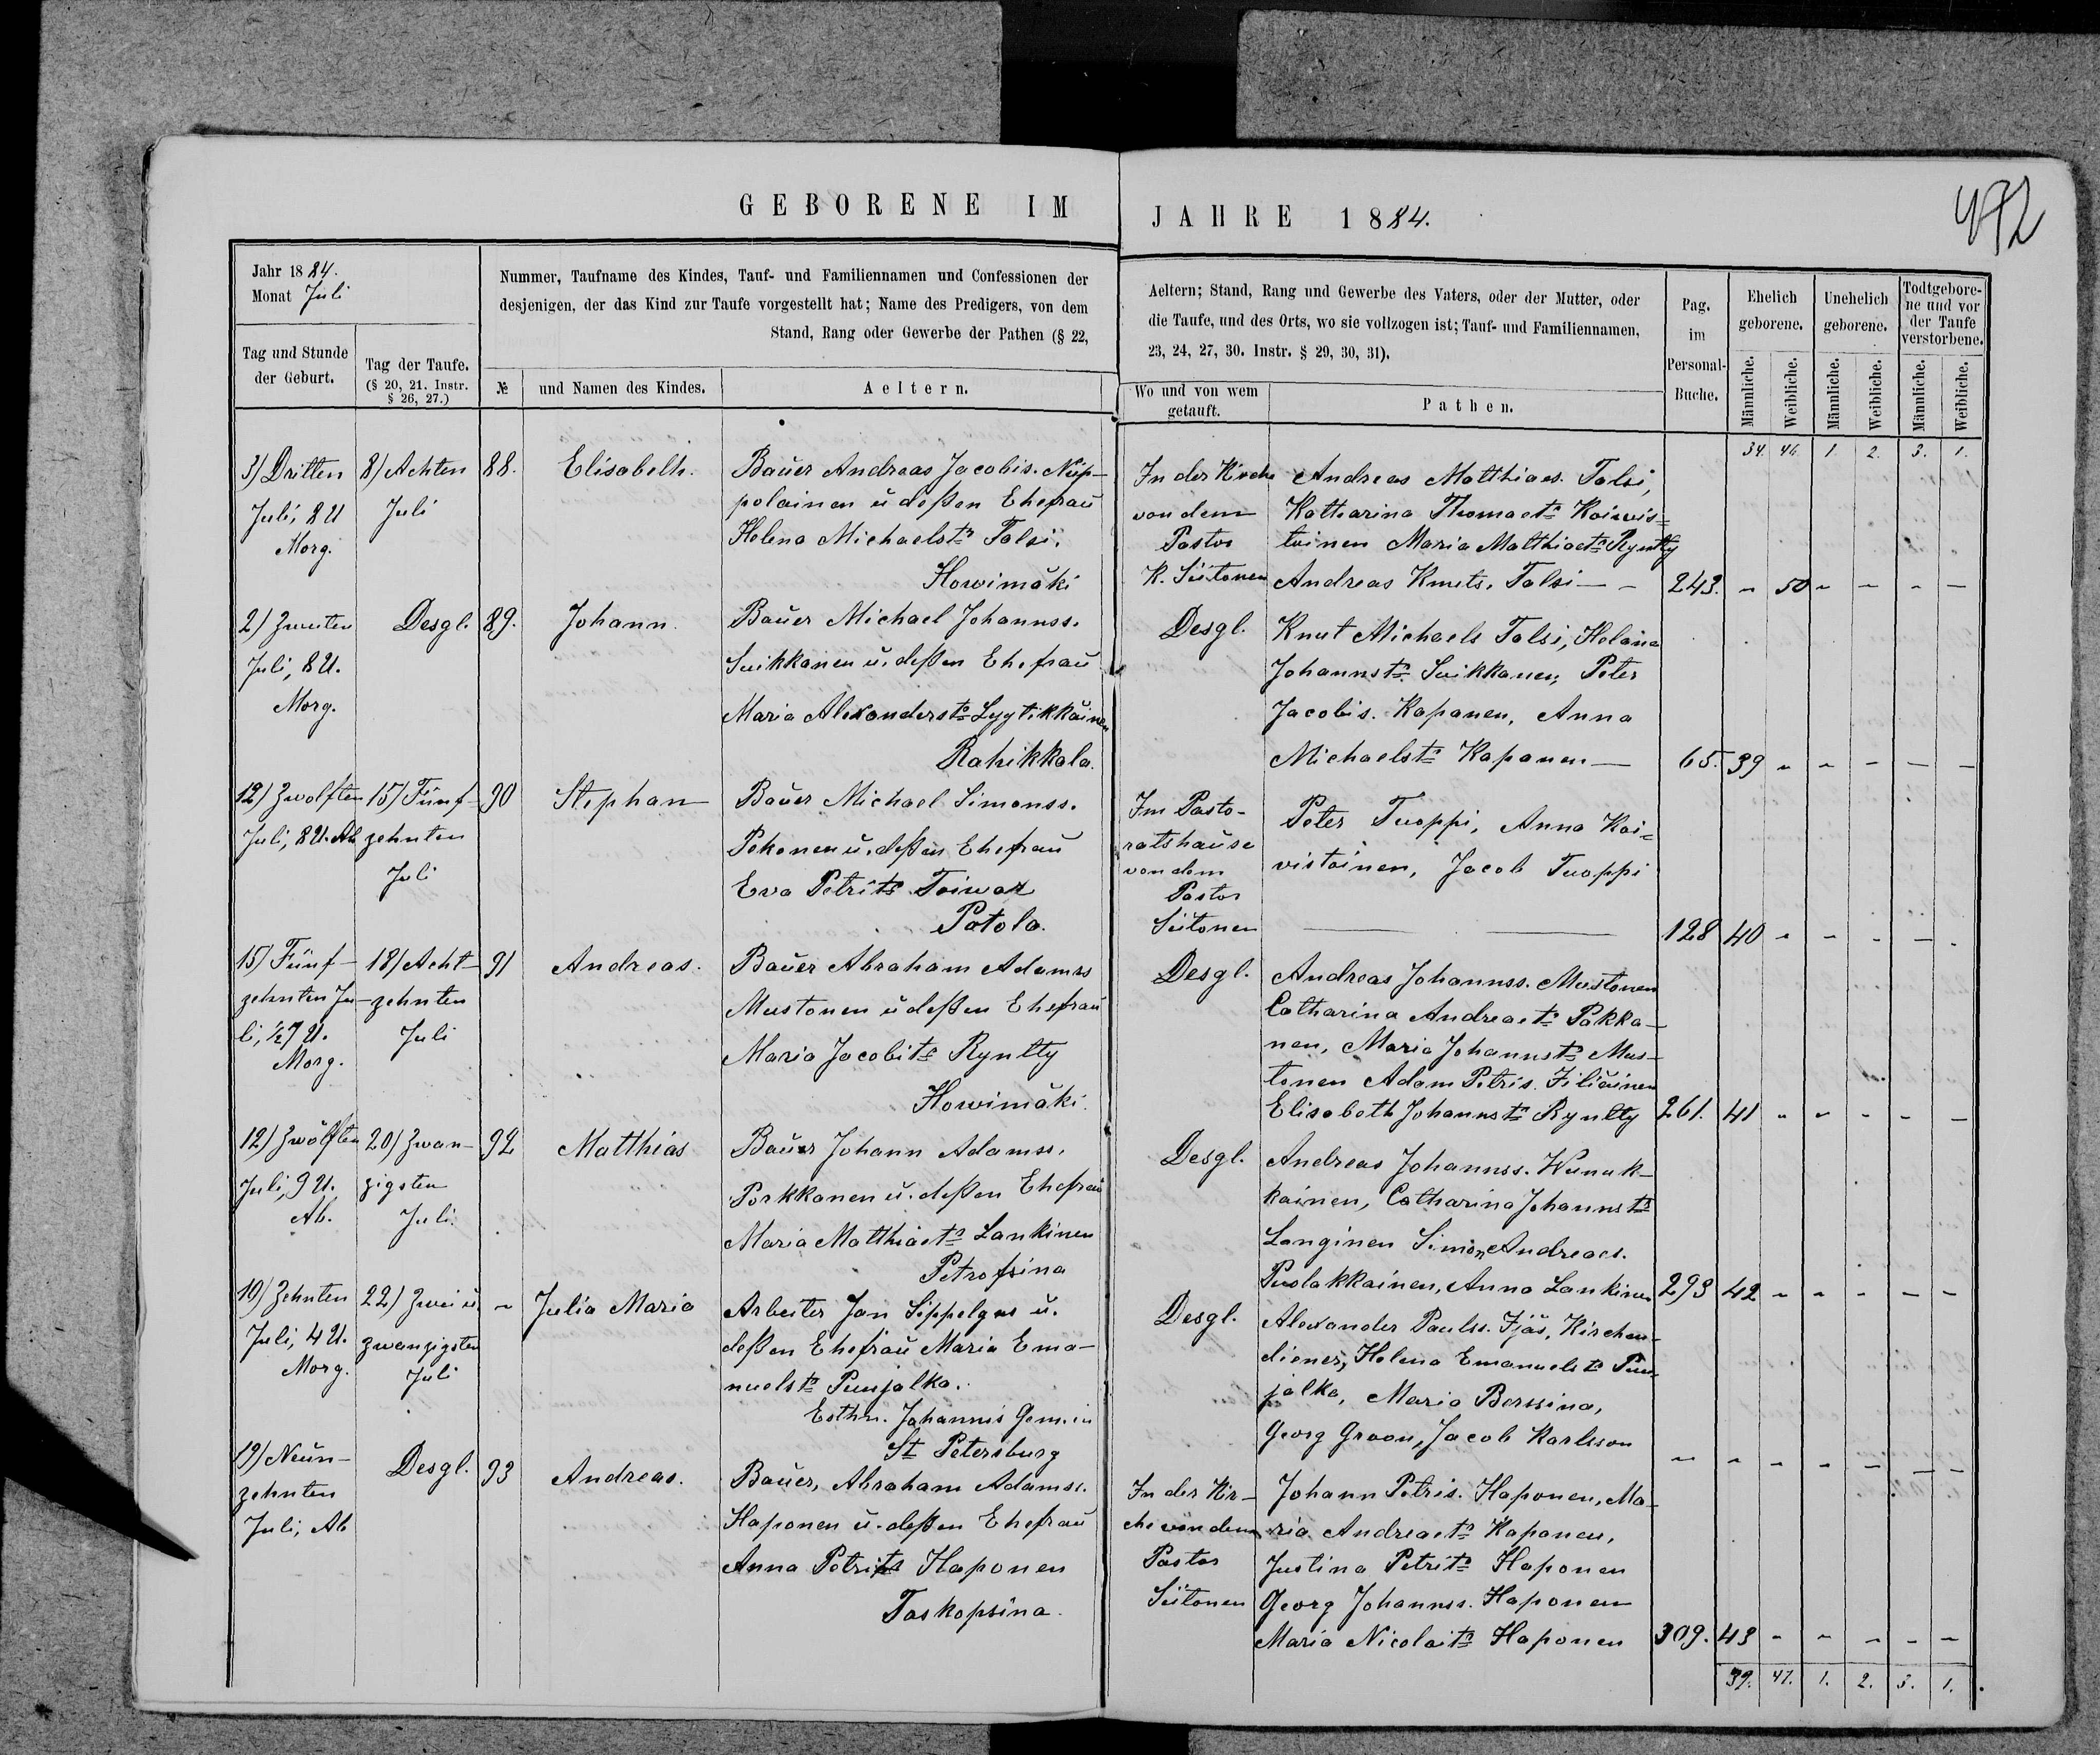 GEBORENE IM
JAHRE 1884.
492
Jahr 1884.
Monat Juli
Nummer, Taufname des Kindes, Tauf- und Familiennamen und Confessionen der
desjenigen, der das Kind zur Taufe vorgestellt hat; Name des Predigers, von dem
Stand, Rang oder Gewerbe der Pathen (§ 22,
Tag und Stunde
der Geburt.
Tag der Taufe.
(§ 20, 21. Instr.
§ 26, 27.)
№
und Namen des Kindes.
Aeltern.
Aeltern; Stand, Rang und Gewerbe des Vaters, oder der Mutter, oder
die Taufe, und des Orts, wo sie vollzogen ist; Tauf- und Familiennamen,
23, 24, 27, 30. Instr. § 29, 30, 31).
Wo und von wem
getauft.
Pathen.
Pag.
im
Personal-
Buche.
Ehelich
geborene.
Unehelich
geborene.
Todtgebore-
ne und vor
der Taufe
verstorbene.
Männliche.
Weibliche.
Männliche.
Weibliche.
Männliche.
Weibliche.
34. 46 1. 2. 3. 1.
3) Dritten
Juli, 8 U
Morg.
8) Achten
Juli
88.
Elisabeth.
Bauer Andreas Jacobis. Nup-
polainen u deßen Ehefrau
Helena Michaelstr Talsi.
Howimäki
In der Kirche
von dem
Pastor
K. Siitonen
Andreas Matthiaes. Talsi,
Katharina Thomaetr Koiwis=
toinen Maria Matthiaetr Ryntty
Andreas Knuts. Talsi — -
243. - 50 - - - -
2) Zweiten
Juli, 8 U.
Morg.
Desgl.
89.
Johann.
Bauer Michael Johannss.
Suikkanen u. deßen Ehefrau
Maria Alexanderstr Lyytikkäinen
Rahikkala.
Desgl.
Knut Michaels Talsi, Helaina
Johannstr Suikkanen, Peter
Jacobis. Kapanen, Anna
Michaelstr Kapanen —
65. 39 - - - - -
12) Zwölften
Juli, 8 U. Ab
15) Fünf-
zehnten
Juli
90
Stephan
Bauer Michael Simonss.
Pekonen u. deßen Ehefrau
Eva Petritr Toiwaz
Potola.
Im Pasto-
ratshause
von dem
Pastor
Siitonen
Peter Tuoppi, Anna Koi=
vistoinen, Jacob Tuoppi
128 40 - - - - -
15) Fünf-
zehnten Ju-
li, ½7 U.
Morg.
18) Acht-
zehnten
Juli
91
Andreas.
Bauer Abraham Adamss
Mustonen u deßen Ehefrau
Maria Jacobitr Ryntty
Howimäki.
Desgl.
Andreas Johannss. Mustonen
Catharina Andreaetr Pakka-
nen, Maria Johannstr Mus-
tonen Adam Petris. Filiäinen
Elisabeth Johannstr Ryntty
261. 41 - - - - -
12) Zwölften
Juli, 9 U.
Ab.
20) Zwan-
zigsten
Juli.
92
Matthias
Bauer Johann Adamss.
Porkkanen u. deßen Ehefrau
Maria Matthiaetr Lankinen
Petrofsina
Desgl.
Andreas Johannss. Wunuk-
kainen, Catharina Johannstr
Langinen Simon Andreaes.
Puolakkainen, Anna Lankinen
293 42 - - - - -
10) Zehnten
Juli, 4 U.
Morg.
22) Zwei u.
zwanzigsten
Juli
-
Julia Maria
Arbeiter Jan Sippelgas u.
deßen Ehefrau Maria Ema-
nuelstr Punjalka.
Esthn. Johannis Gem. in
St Petersburg
Desgl.
Alexander Paulss. Ijäs, Kirchen-
diener, Helena Emanuelstr Pun-
jalka, Maria Berssina,
Georg Groon, Jacob Karlsson
- - - - - - -
19) Neun-
zehnten
Juli, Ab
Desgl.
93
Andreas.
Bauer, Abraham Adamss.
Haponen u. deßen Ehefrau
Anna Petritr Haponen
Toskopsina.
In der Kir-
che von dem
Pastor
Siitonen
Johann Petris. Haponen, Ma-
ria Andreaetr Kaponen,
Justina Petritr Haponen
Georg Johannss. Haponen
Maria Nicolaitr Haponen
309. 43 - - - - -
39. 47. 1. 2. 3. 1.